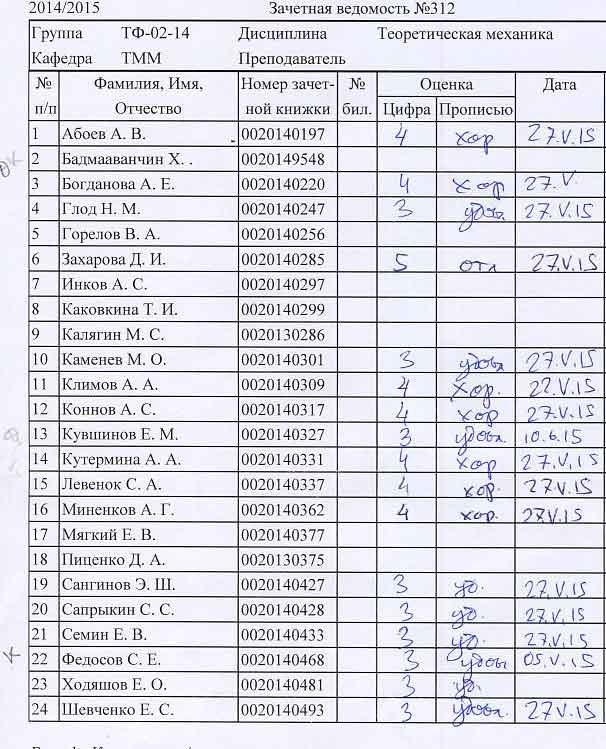 2014/2015 Зачетная ведомость №312
Группа ТФ-02-14 Дисциплина Теоретическая механика
Кафедра ТММ Преподаватель
№ Фамилия, Имя, Номер зачет- № Оценка Дата
п/п Отчество ной книжки бил. Цифра Прописью
1 Абоев А. В. 0020140197 4 хор 27.V.15
2 Бадмааванчин Х. . 0020149548
3 Богданова А. Е. 0020140220 4 хор 27.V.
4 Глод Н. М. 0020140247 3 удовл 27.V.15
5 Горелов В. А. 0020140256
6 Захарова Д. И. 0020140285 5 отл 27.V.15
7 Инков А. С. 0020140297
8 Каковкина Т. И. 0020140299
9 Калягин М. С. 0020130286
10 Каменев М. О. 0020140301 3 удовл 27.V.15
11 Климов А. А. 0020140309 4 хор. 27.V.15
12 Коннов А. С. 0020140317 4 хор 27.V.15
13 Кувшинов Е. М. 0020140327 3 удовл. 10.6.15
14 Кутермина А. А. 0020140331 4 хор 27.V.15
15 Левенок С. А. 0020140337 4 хор. 27.V.15
16 Миненков А. Г. 0020140362 4 хор. 27.V.15
17 Мягкий Е. В. 0020140377
18 Пиценко Д. А. 0020130375
19 Сангинов Э. Ш. 0020140427 3 уд. 27.V.15
20 Сапрыкин С. С. 0020140428 3 уд. 27.V.15
21 Семин Е. В. 0020140433 3 уд. 27.V.15
22 Федосов С. Е. 0020140468 3 удовл 05.V.15
23 Ходяшов Е. О. 0020140481 3 уд.
24 Шевченко Е. С. 0020140493 3 удовл. 27.V.15